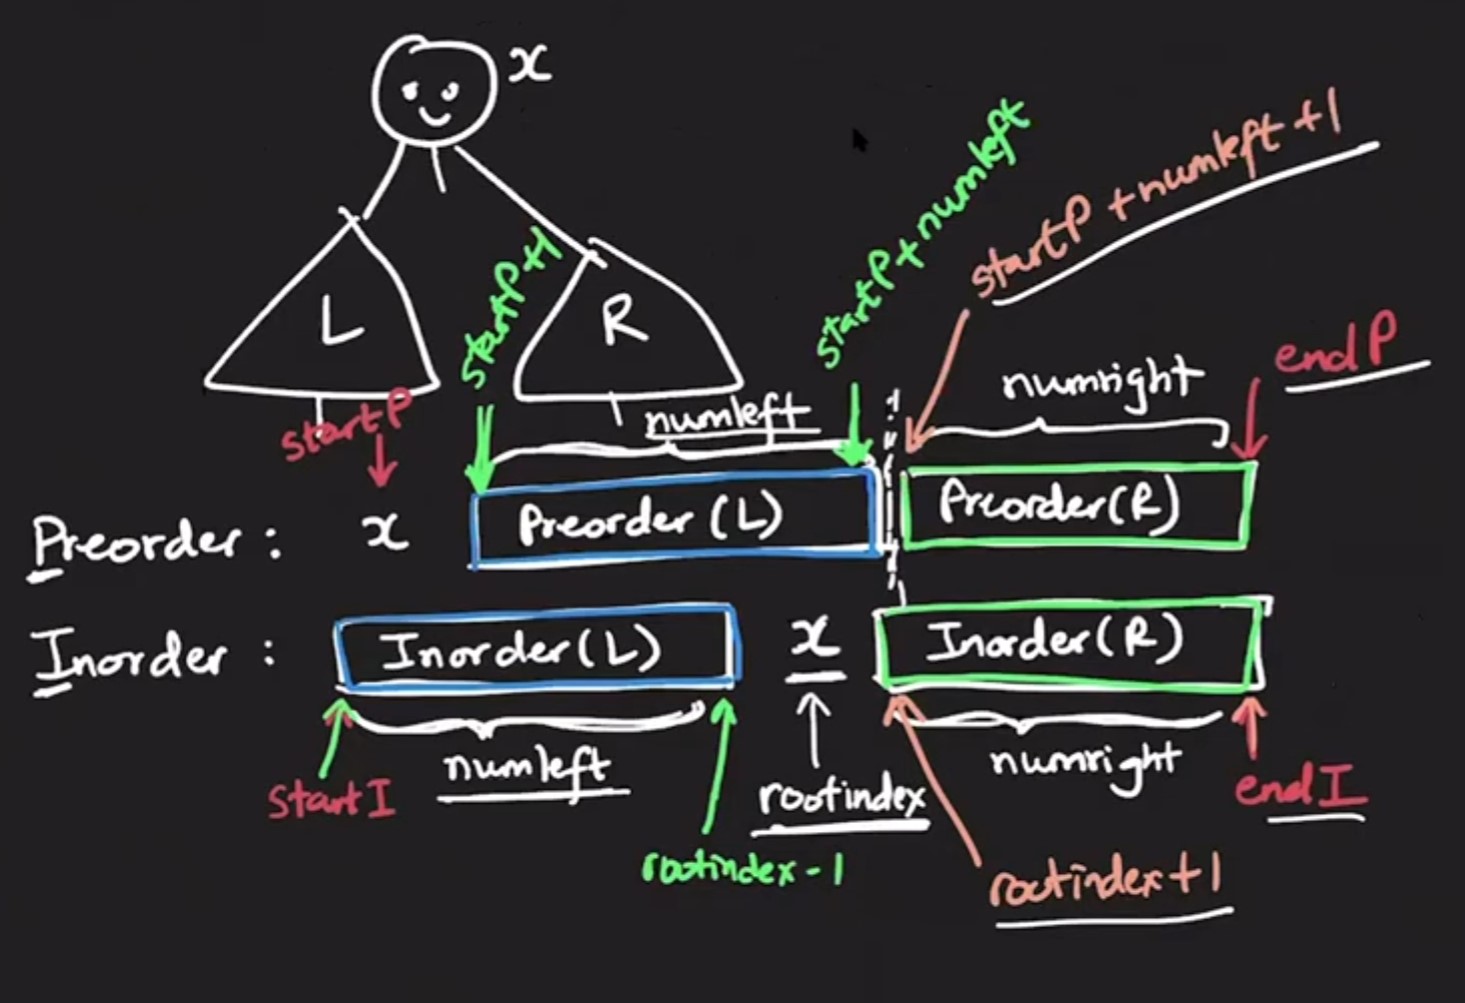 x
startP+numleft
startP+numleft+1
startP+1
L
R
endP
numright
numleft
startP
Preorder : x Preorder(L) Preorder(R)
Inorder : Inorder(L) x Inorder(R)
numleft
numright
startI
rootindex
endI
rootindex-1
rootindex+1